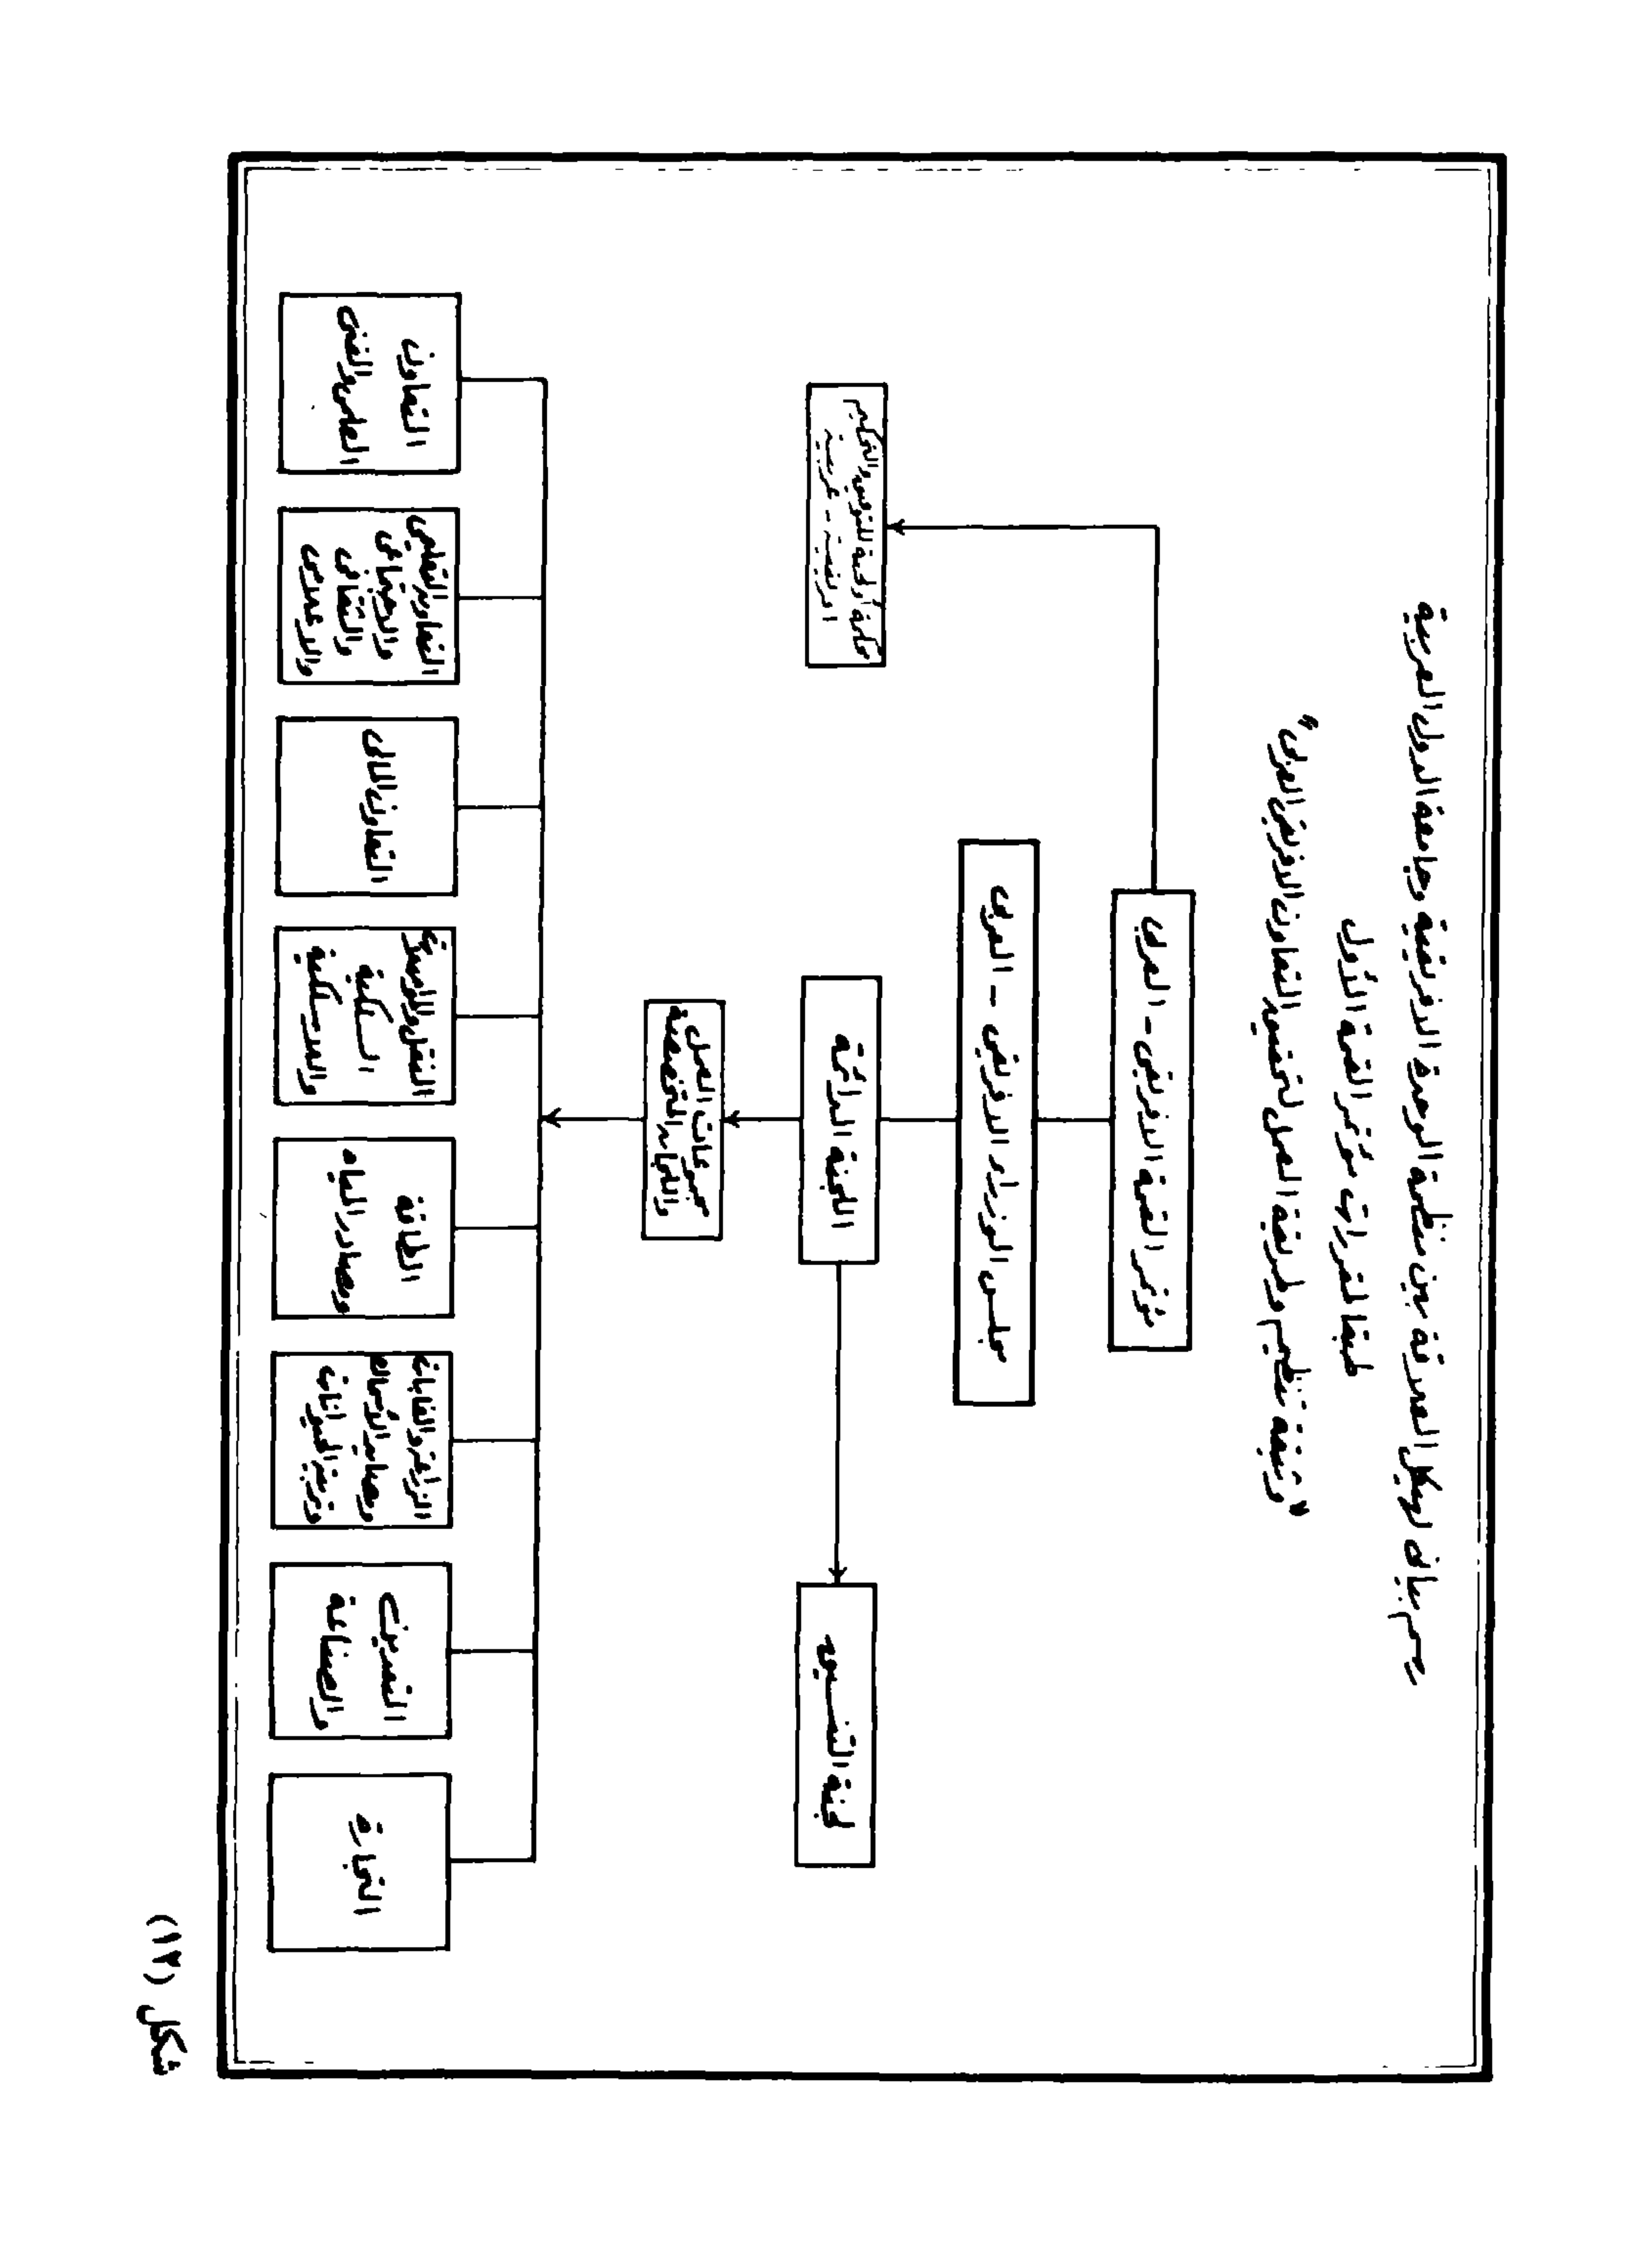 رسم بيانى لهيكل العلاقة بين منظمة الوحدة الافريقية وجامعة الدول العربية
طبقا لمقررات مؤتمر القمة الأول
"وثيقة تنظيم وطريقة العمل لتحقيق التعاون الافريقى العربى"
مؤتمر القمة الافريقى - العربى
مجلس الوزراء الافريقى - العربى
لجنة التنسيق
اللجنة الدائمة
محكمة أو لجنة للتوفيق والتحكيم
افريقية - عربية
مجموعات العمل
واللجان المتخصصة
التجارة
التعدين
والصناعة
الزراعة والغابات
ومصايد الأسماك
وتربية الحيوانات
الطاقة
ومصادر المياه
النقل والمواصلات
السلكية
واللاسلكية
التعاون المالى
التعاون التعليمى
والاجتماعى
والثقافى
والاعلامى
التعاون
العلمى والفنى
شكل (١٢)